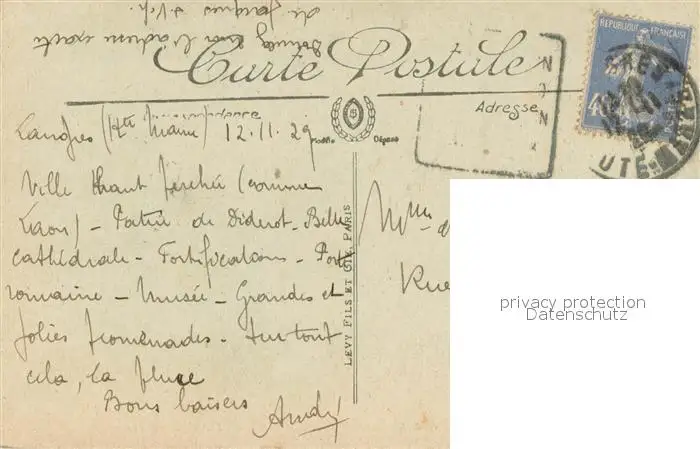 Donnez moi l'adresse exacte
de Jacques s.v.p.
Carte Postale
Correspondance
Adresse
Modèle Déposé
Langres (Hte Marne) 12.11.29
Ville haut perchée (comme
Laon) - Patrie de Diderot - Belle
cathédrale - Fortifications - Porte
romaine - Musée - Grandes et
jolies promenades - Surtout
cela, la pluie
Bons baisers
André
LEVY FILS ET CIE, PARIS
Mme
Rue
REPUBLIQUE FRANÇAISE
UTE-M
privacy protection
Datenschutz